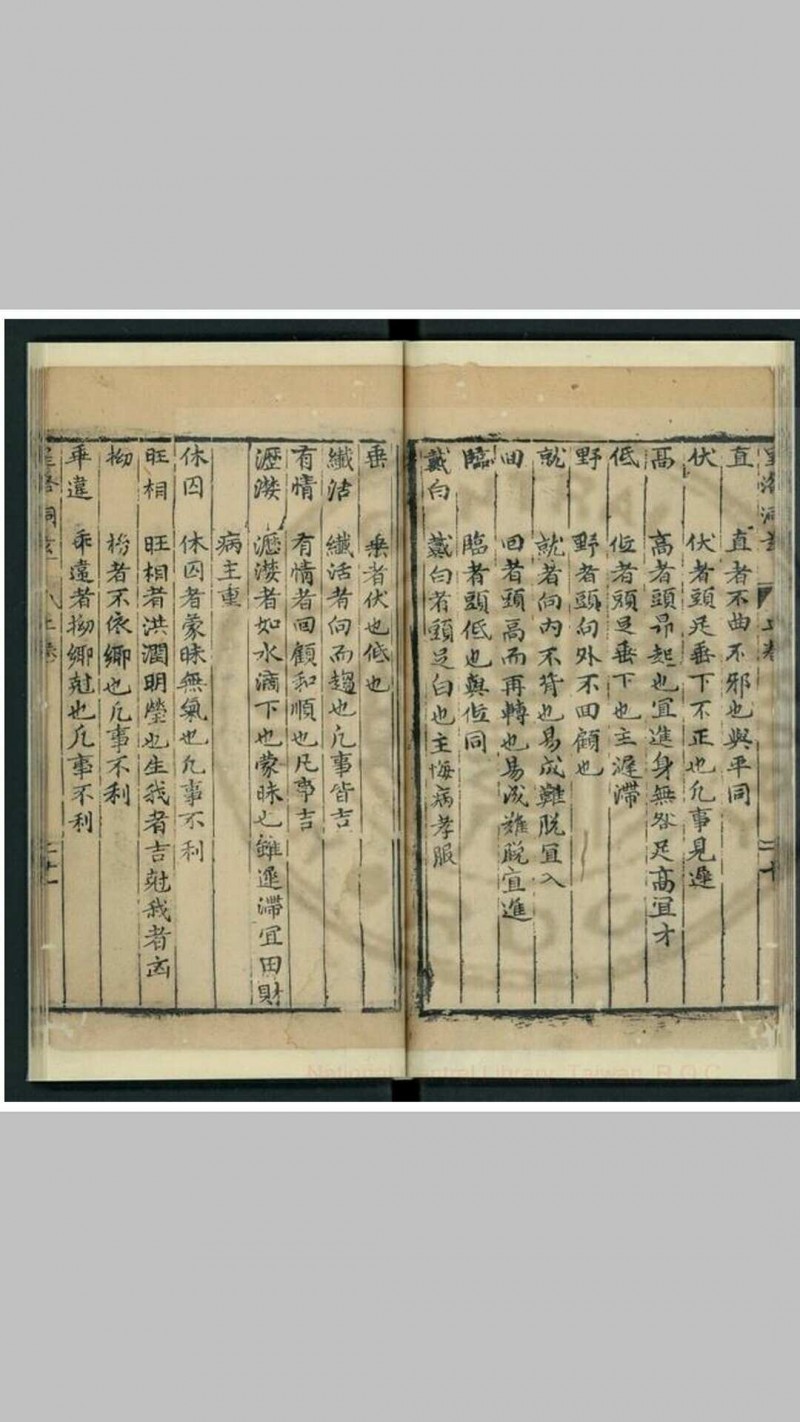 直　直者不曲不邪也與平同
伏　伏者頭足垂下不正也凡事見遲
高　高者頭昻起也宜進身無咎足高宜才
低　低者頭足垂下也主遲滯
野　野者頭向外不回顧也
就　就者向內不背也易成難脫宜入
回　回者頭高而再轉也易成難脫宜進
臨　臨者頭低也與低同
戴白　戴白者頭足白也主悔病孝服
垂　垂者伏也低也
纖活　纖活者向而趨也凡事皆吉
有情　有情者回顧和順也凡事吉
瀝漤　瀝漤者如水滴下也蒙昧也雖遲滯宜田財
病主重
休囚　休囚者蒙昧無氣也凡事不利
旺相　旺相者洪潤明瑩也生我者吉尅我者凶
拗　拗者不依鄉也凡事不利
乖違　乖違者拗鄉尅也凡事不利
National Central Library, Taiwan, R.O.C